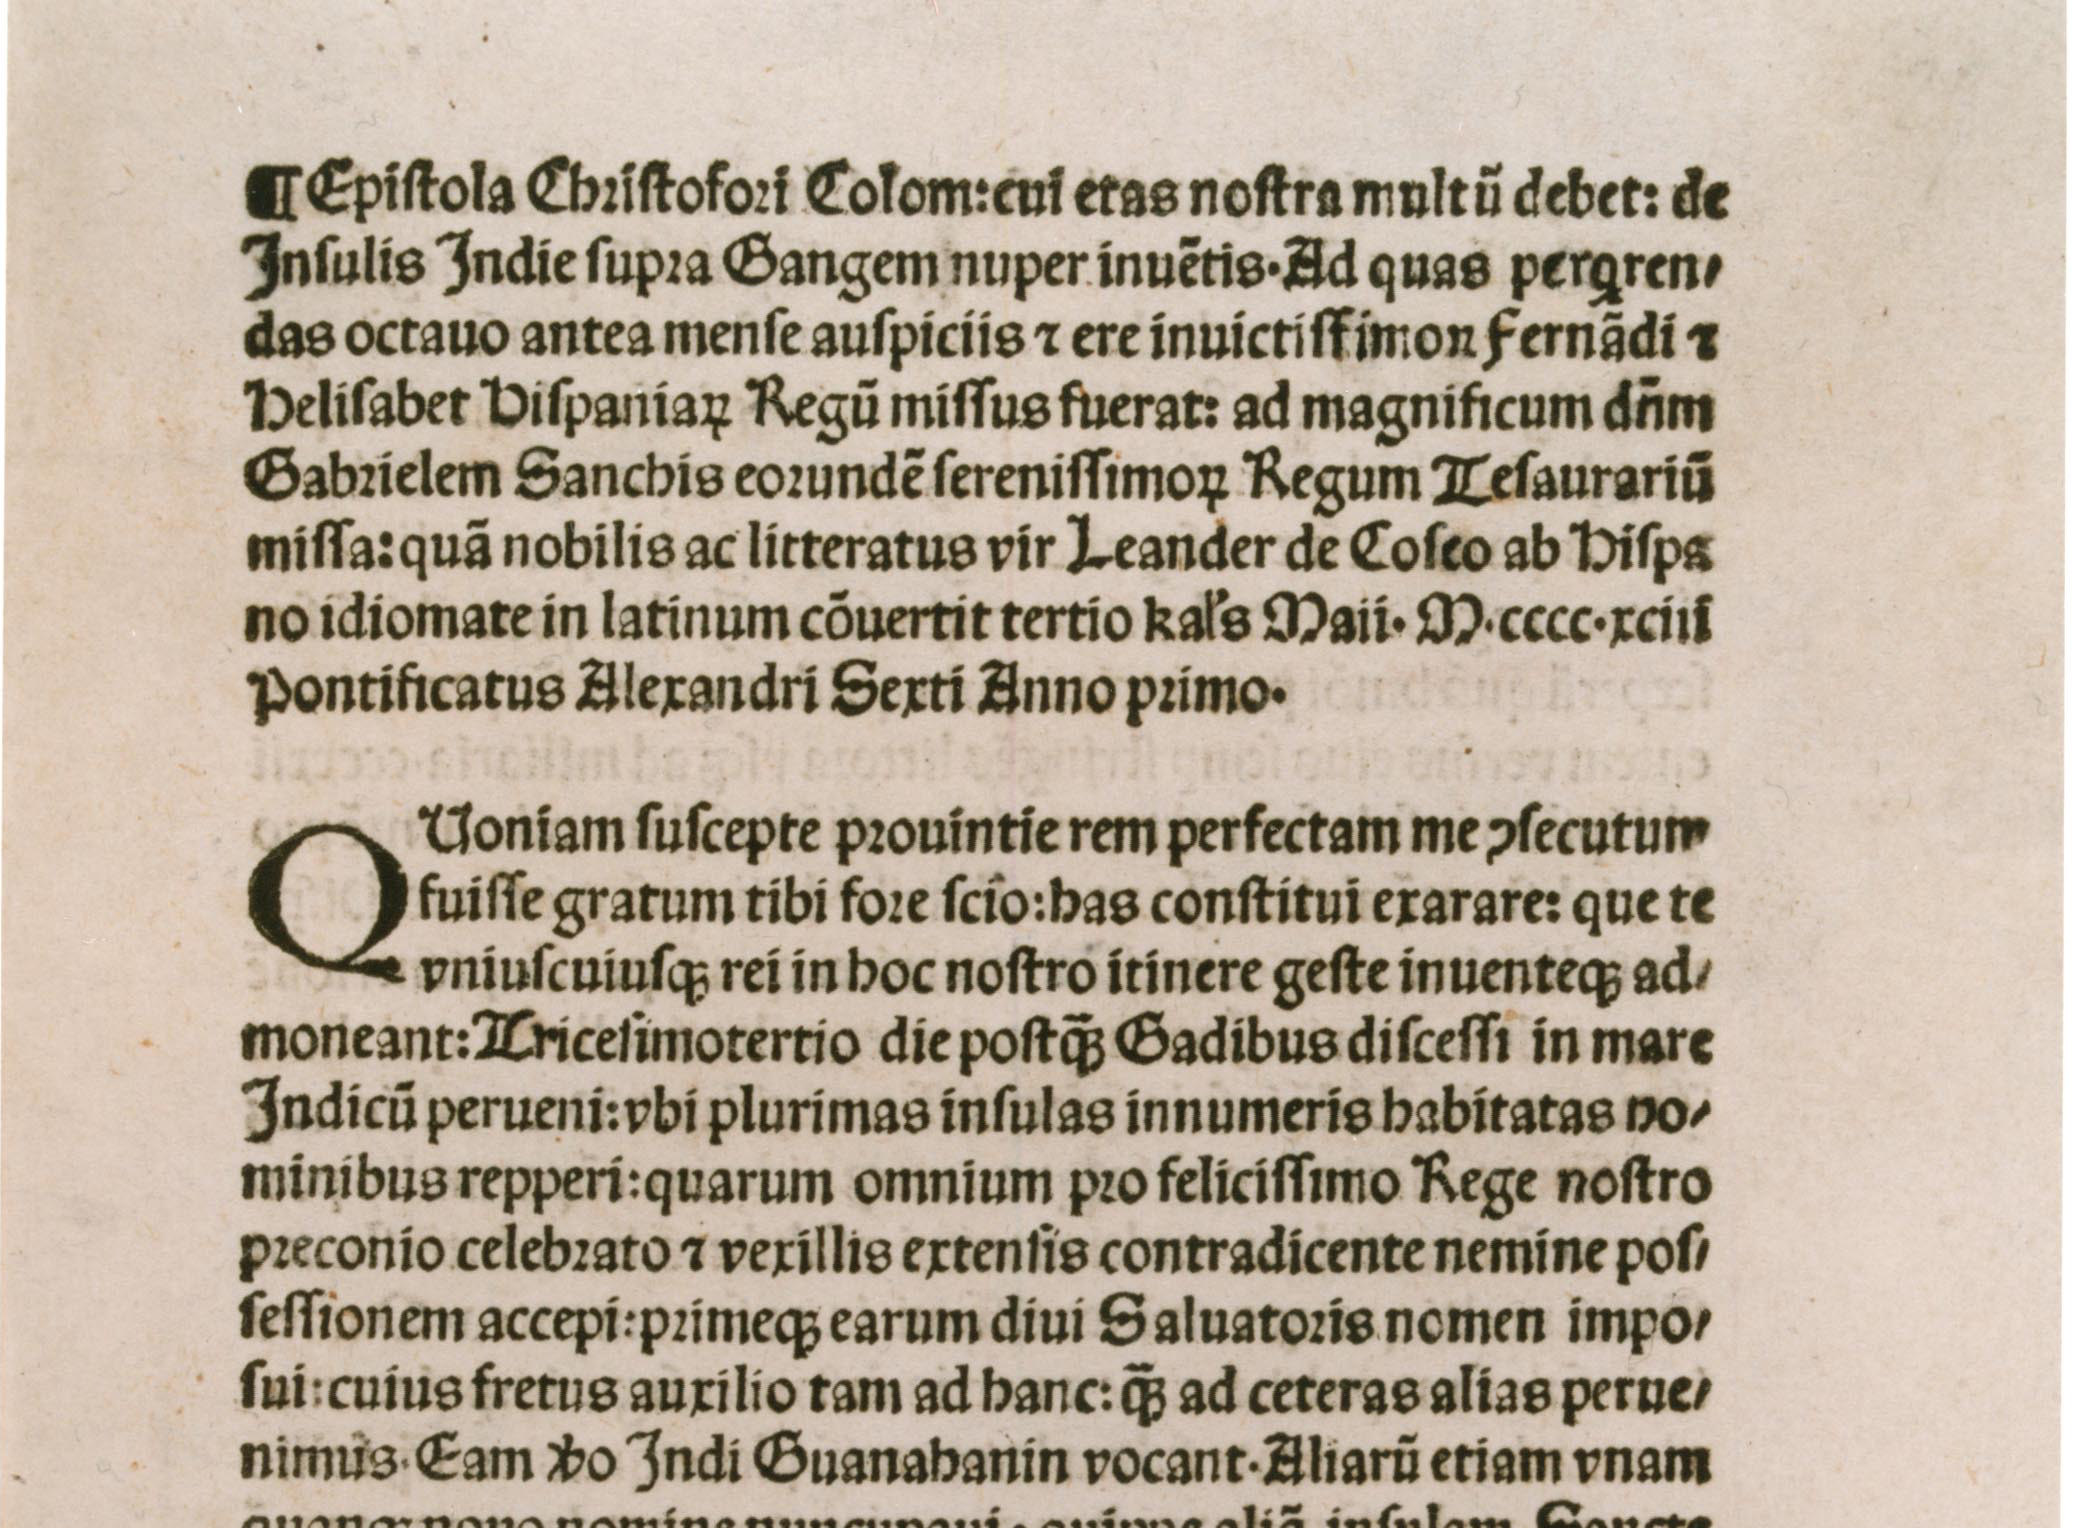 ¶ Epiſtola Chriſtofori Colom: cui etas noſtra multū debet: de
Inſulis Indie ſupra Gangem nuper inuētis. Ad quas perqren⸗
das octauo antea menſe auſpiciis ⁊ ere inuictiſſimoꝝ Fernādi ⁊
Heliſabet Hiſpaniaꝝ Regū miſſus fuerat: ad magnificum dn̄m
Gabrielem Sanchis eorundē ſereniſſimoꝝ Regum Teſaurariū
miſſa: quā nobilis ac litteratus vir Leander de Coſco ab Hiſpa
no idiomate in latinum cōuertit tertio kal's Maii. M.cccc.xciii
Pontificatus Alexandri Sexti Anno primo.
QUoniam ſuſcepte prouintie rem perfectam me ꝯſecutum
fuiſſe gratum tibi fore ſcio: has conſtitui exarare: que te
vniuſcuiuſqꝫ rei in hoc noſtro itinere geſte inuenteqꝫ ad⸗
moneant: Triceſimotertio die poſtq̄ꝫ Gadibus diſceſſi in mare
Indicū perueni: vbi plurimas inſulas innumeris habitatas ho⸗
minibus repperi: quarum omnium pro feliciſſimo Rege noſtro
preconio celebrato ⁊ vexillis extenſis contradicente nemine poſ⸗
ſeſſionem accepi: primeqꝫ earum diui Saluatoris nomen impo⸗
ſui: cuius fretus auxilio tam ad hanc: q̄ꝫ ad ceteras alias perue⸗
nimus. Eam ꝟo Indi Guanahanin vocant. Aliarū etiam vnam
quanqꝫ nouo nomine nuncupaui: quippe aliā inſulam Sancte